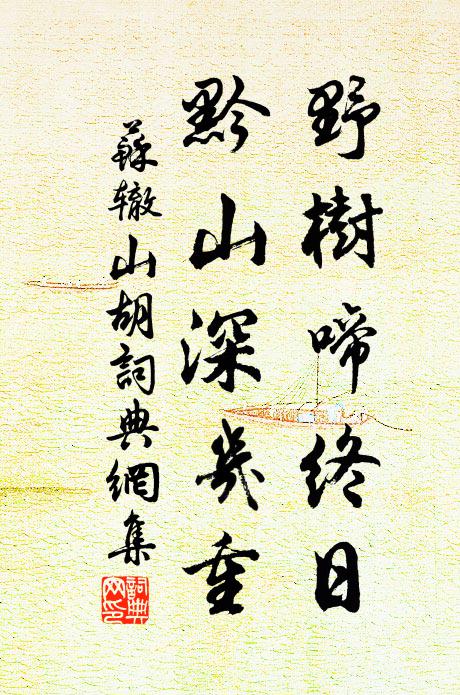 野樹啼終日
黔山深幾重
蘇辙山胡詞典網集
詞典
网印